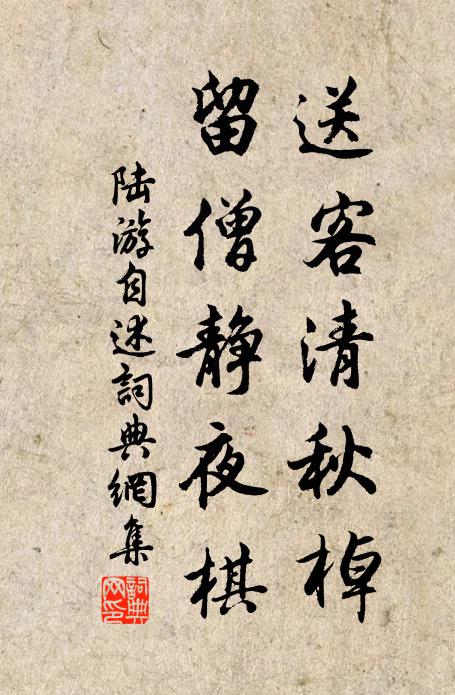 送客清秋棹
留僧静夜棋
陆游自述詞典網集
詞典网印